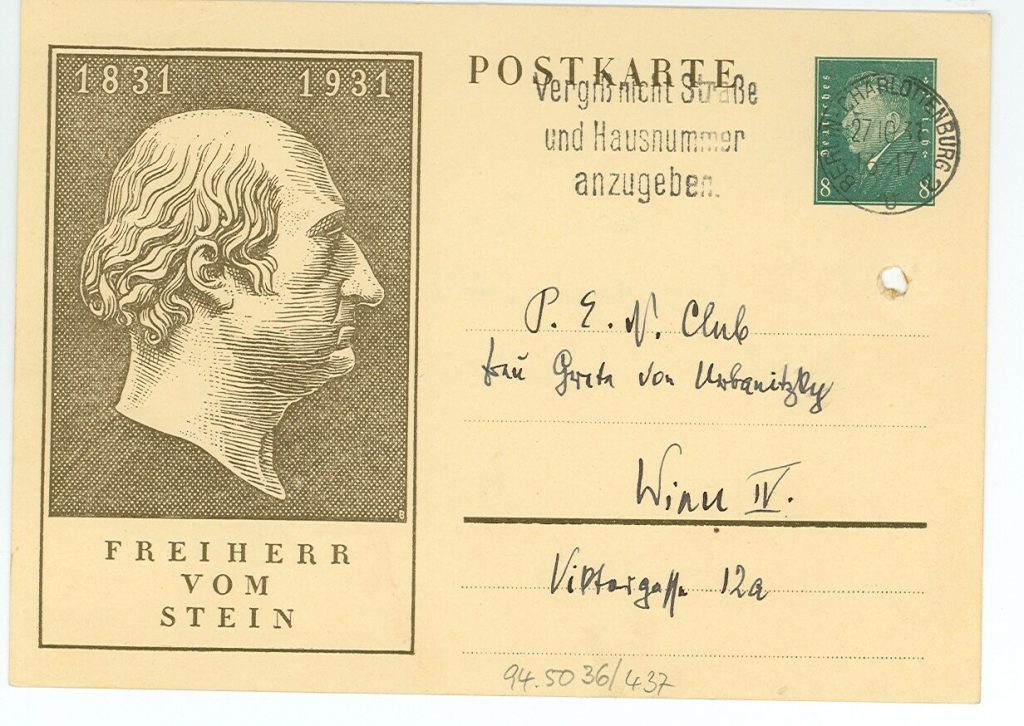 1831 1931
FREIHERR
VOM
STEIN
POSTKARTE
Vergiß nicht Straße
und Hausnummer
anzugeben.
Deutsches Reich
8 8
CHARLOTTENBURG 2
27.10.31
16-17
P. E. N. Club
Frau Grete von Urbanitzky
Wien IV.
Viktorgasse 12a
94.5036/437